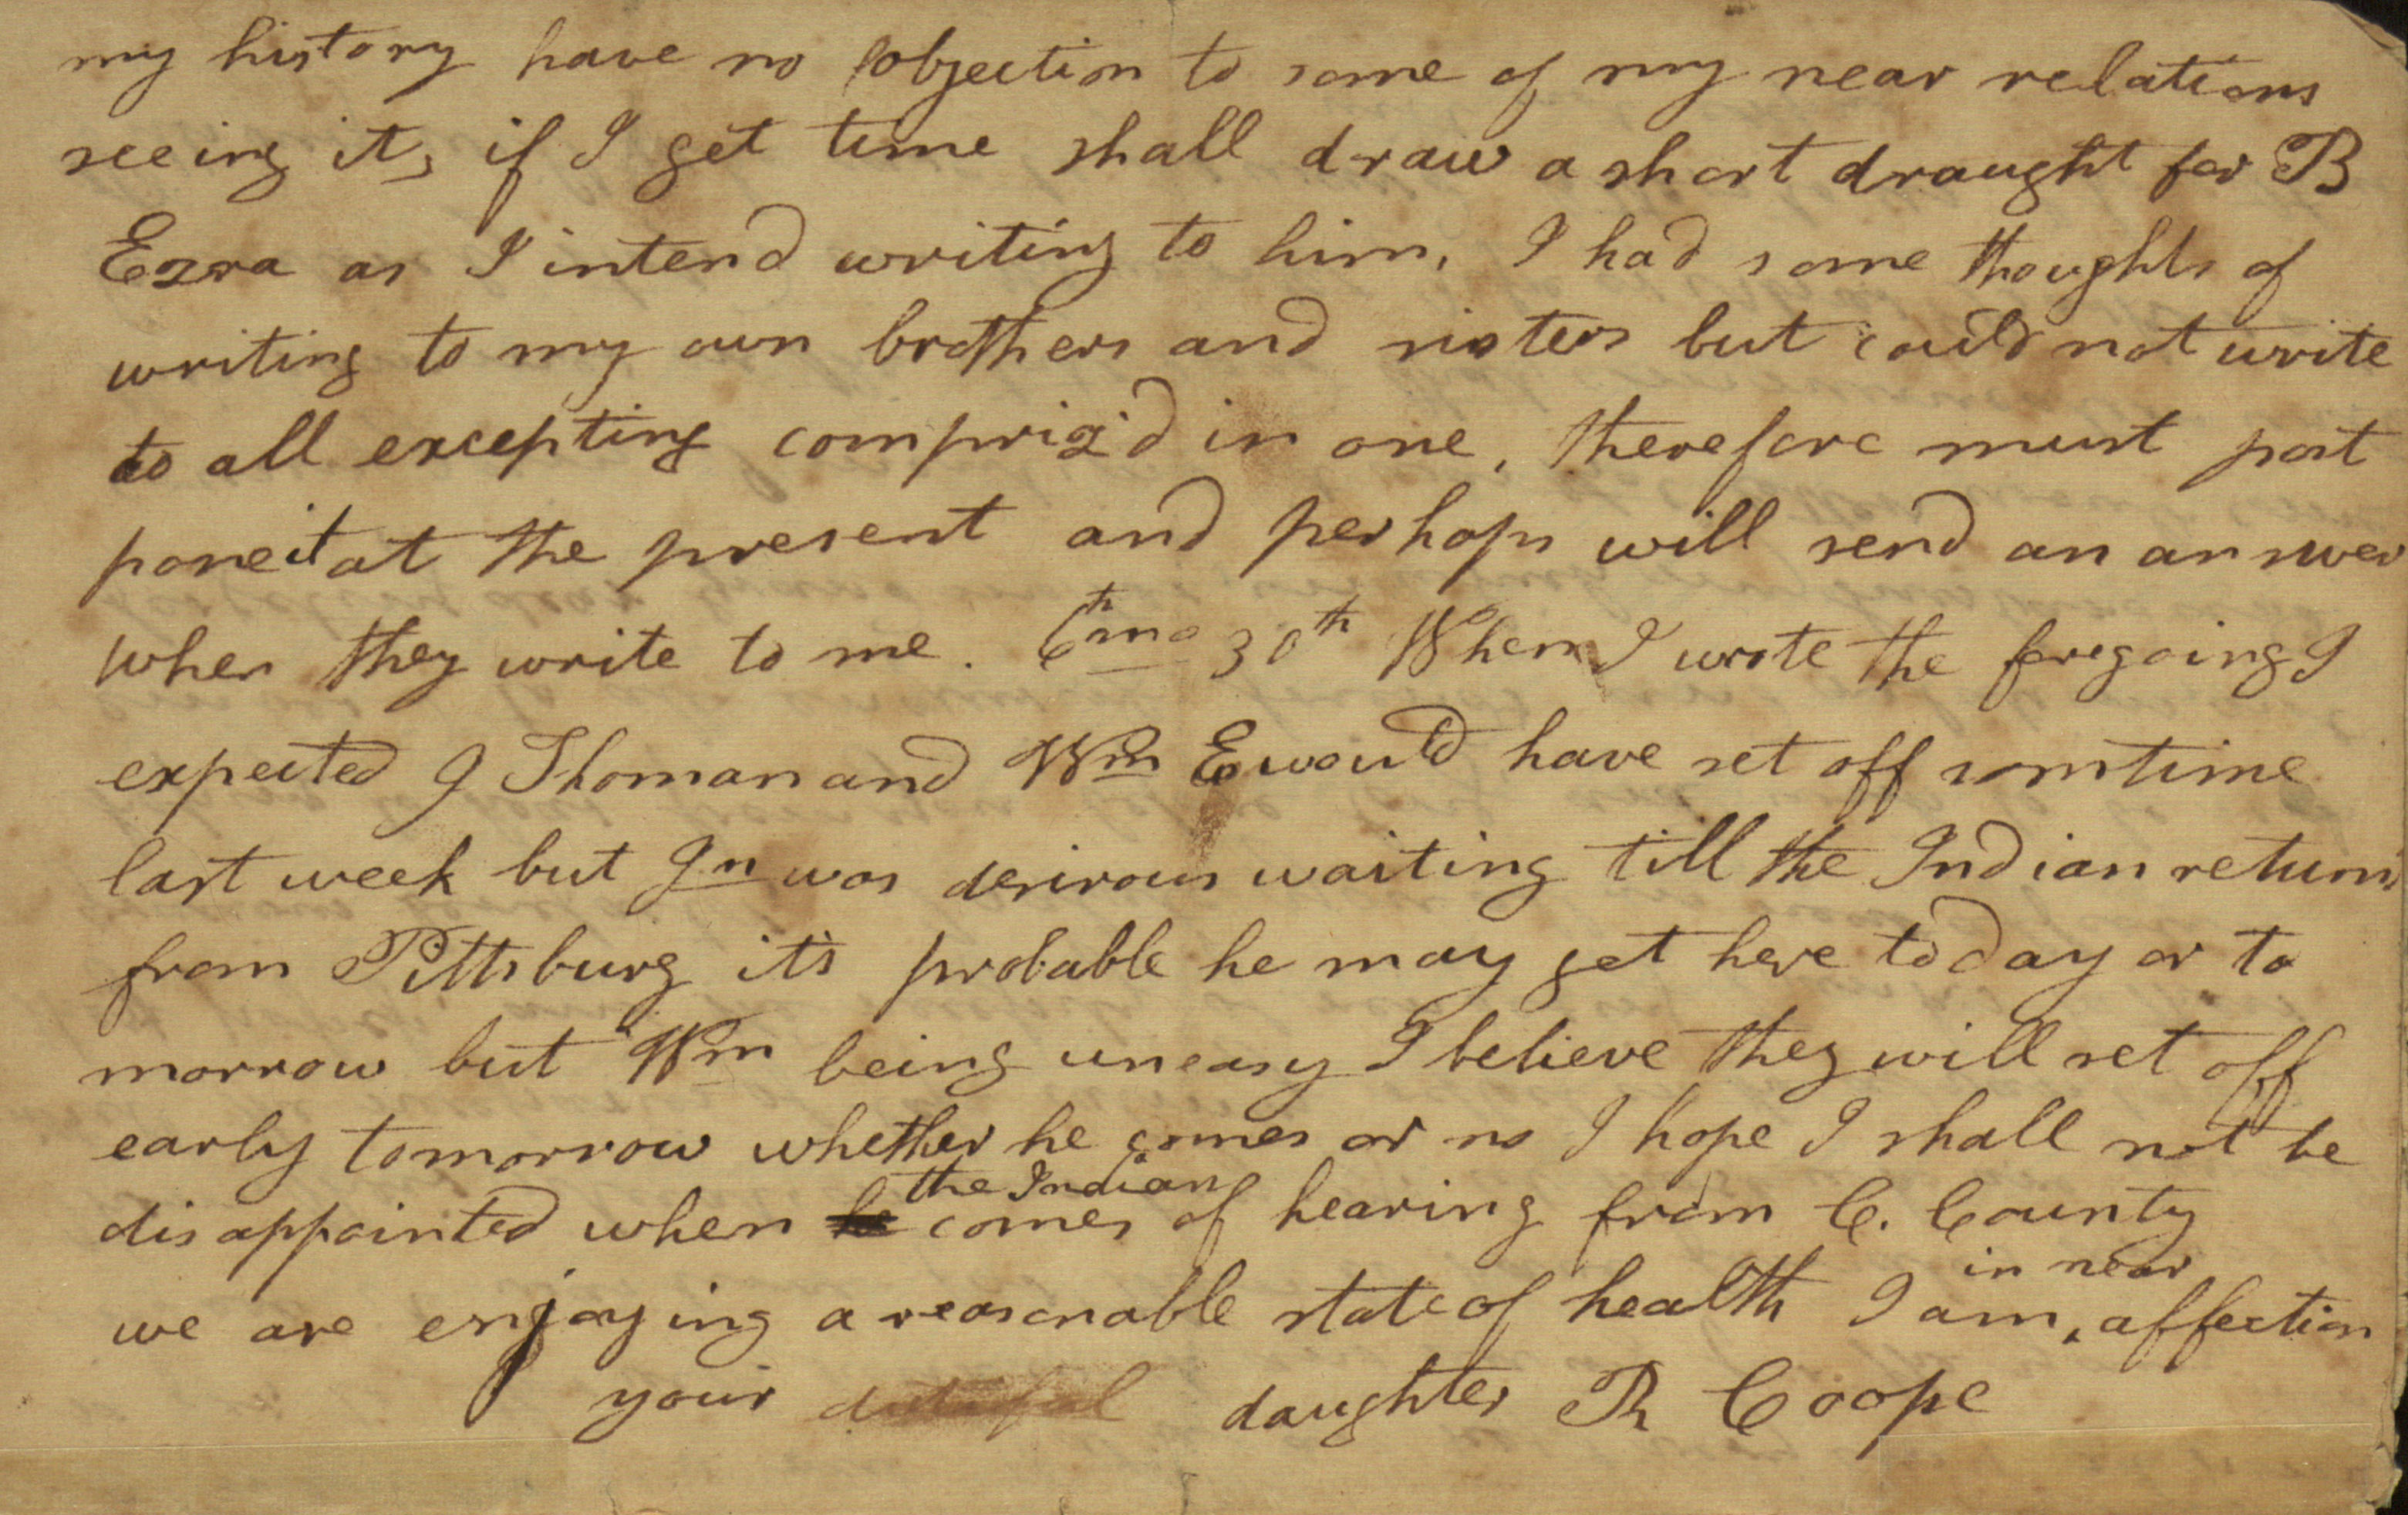 my history have no objection to some of my near relations
seeing it, if I get time shall draw a short draught for B
Ezra as I intend writing to him, I had some thoughts of
writing to my own brothers and sisters but could not write
to all excepting compriz'd in one, therefore must post
pone it at the present and perhaps will send an answer
when they write to me. 6th mo 30th When I wrote the foregoing I
expected J Thoman and Wm E would have set off somtime
last week but Jn was desirous waiting till the Indian returns
from Pittsburg it's probable he may get here today or to
morrow but Wm being uneasy I believe they will set off
early tomorrow whether he comes or no I hope I shall not be
disappointed when he the Indian comes of hearing from C. County
we are enjoying a reasonable state of health I am, in near affection
your dutiful daughter R Coope